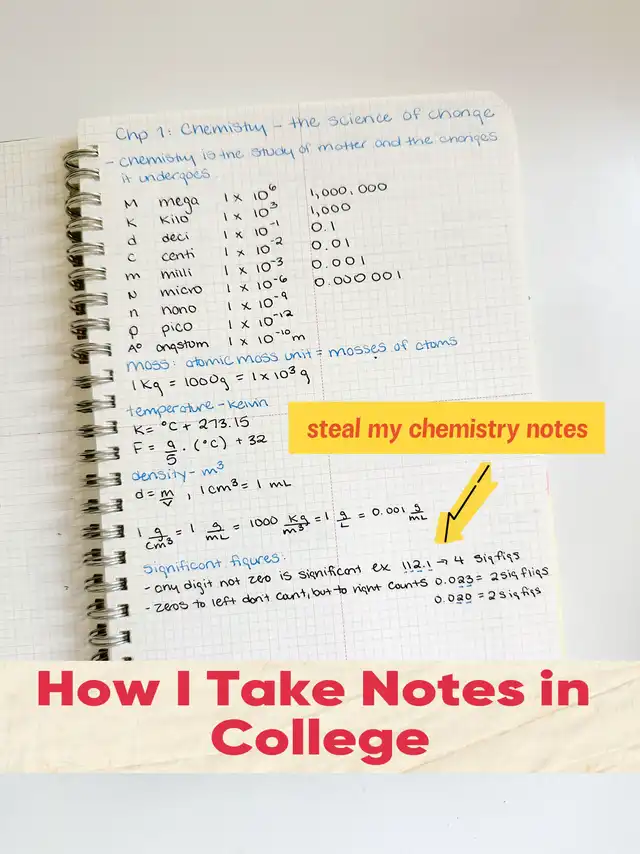 Chp 1: Chemistry - the science of change
- chemistry is the study of matter and the changes
it undergoes.
M mega 1 x 10⁶ 1,000,000
K Kilo 1 x 10³ 1,000
d deci 1 x 10⁻¹ 0.1
c centi 1 x 10⁻² 0.01
m milli 1 x 10⁻³ 0.001
N micro 1 x 10⁻⁶ 0.000001
n nono 1 x 10⁻⁹
p pico 1 x 10⁻¹²
A° angstom 1 x 10⁻¹⁰ m
mass: atomic mass unit = masses of atoms
1 Kg = 1000g = 1 x 10³ g
temperature - kelvin
K = °C + 273.15
F = 9/5 · (°C) + 32
density - m³
d = m/v, 1 cm³ = 1 mL
1 g/cm³ = 1 g/mL = 1000 Kg/m³ = 1 g/L = 0.001 g/mL
significant figures:
- any digit not zero is significant ex 112.1 → 4 sigfigs
- zeros to left don't cant, but to right counts 0.023 = 2 sig fligs
0.020 = 2 sigfigs
steal my chemistry notes
How I Take Notes in
College